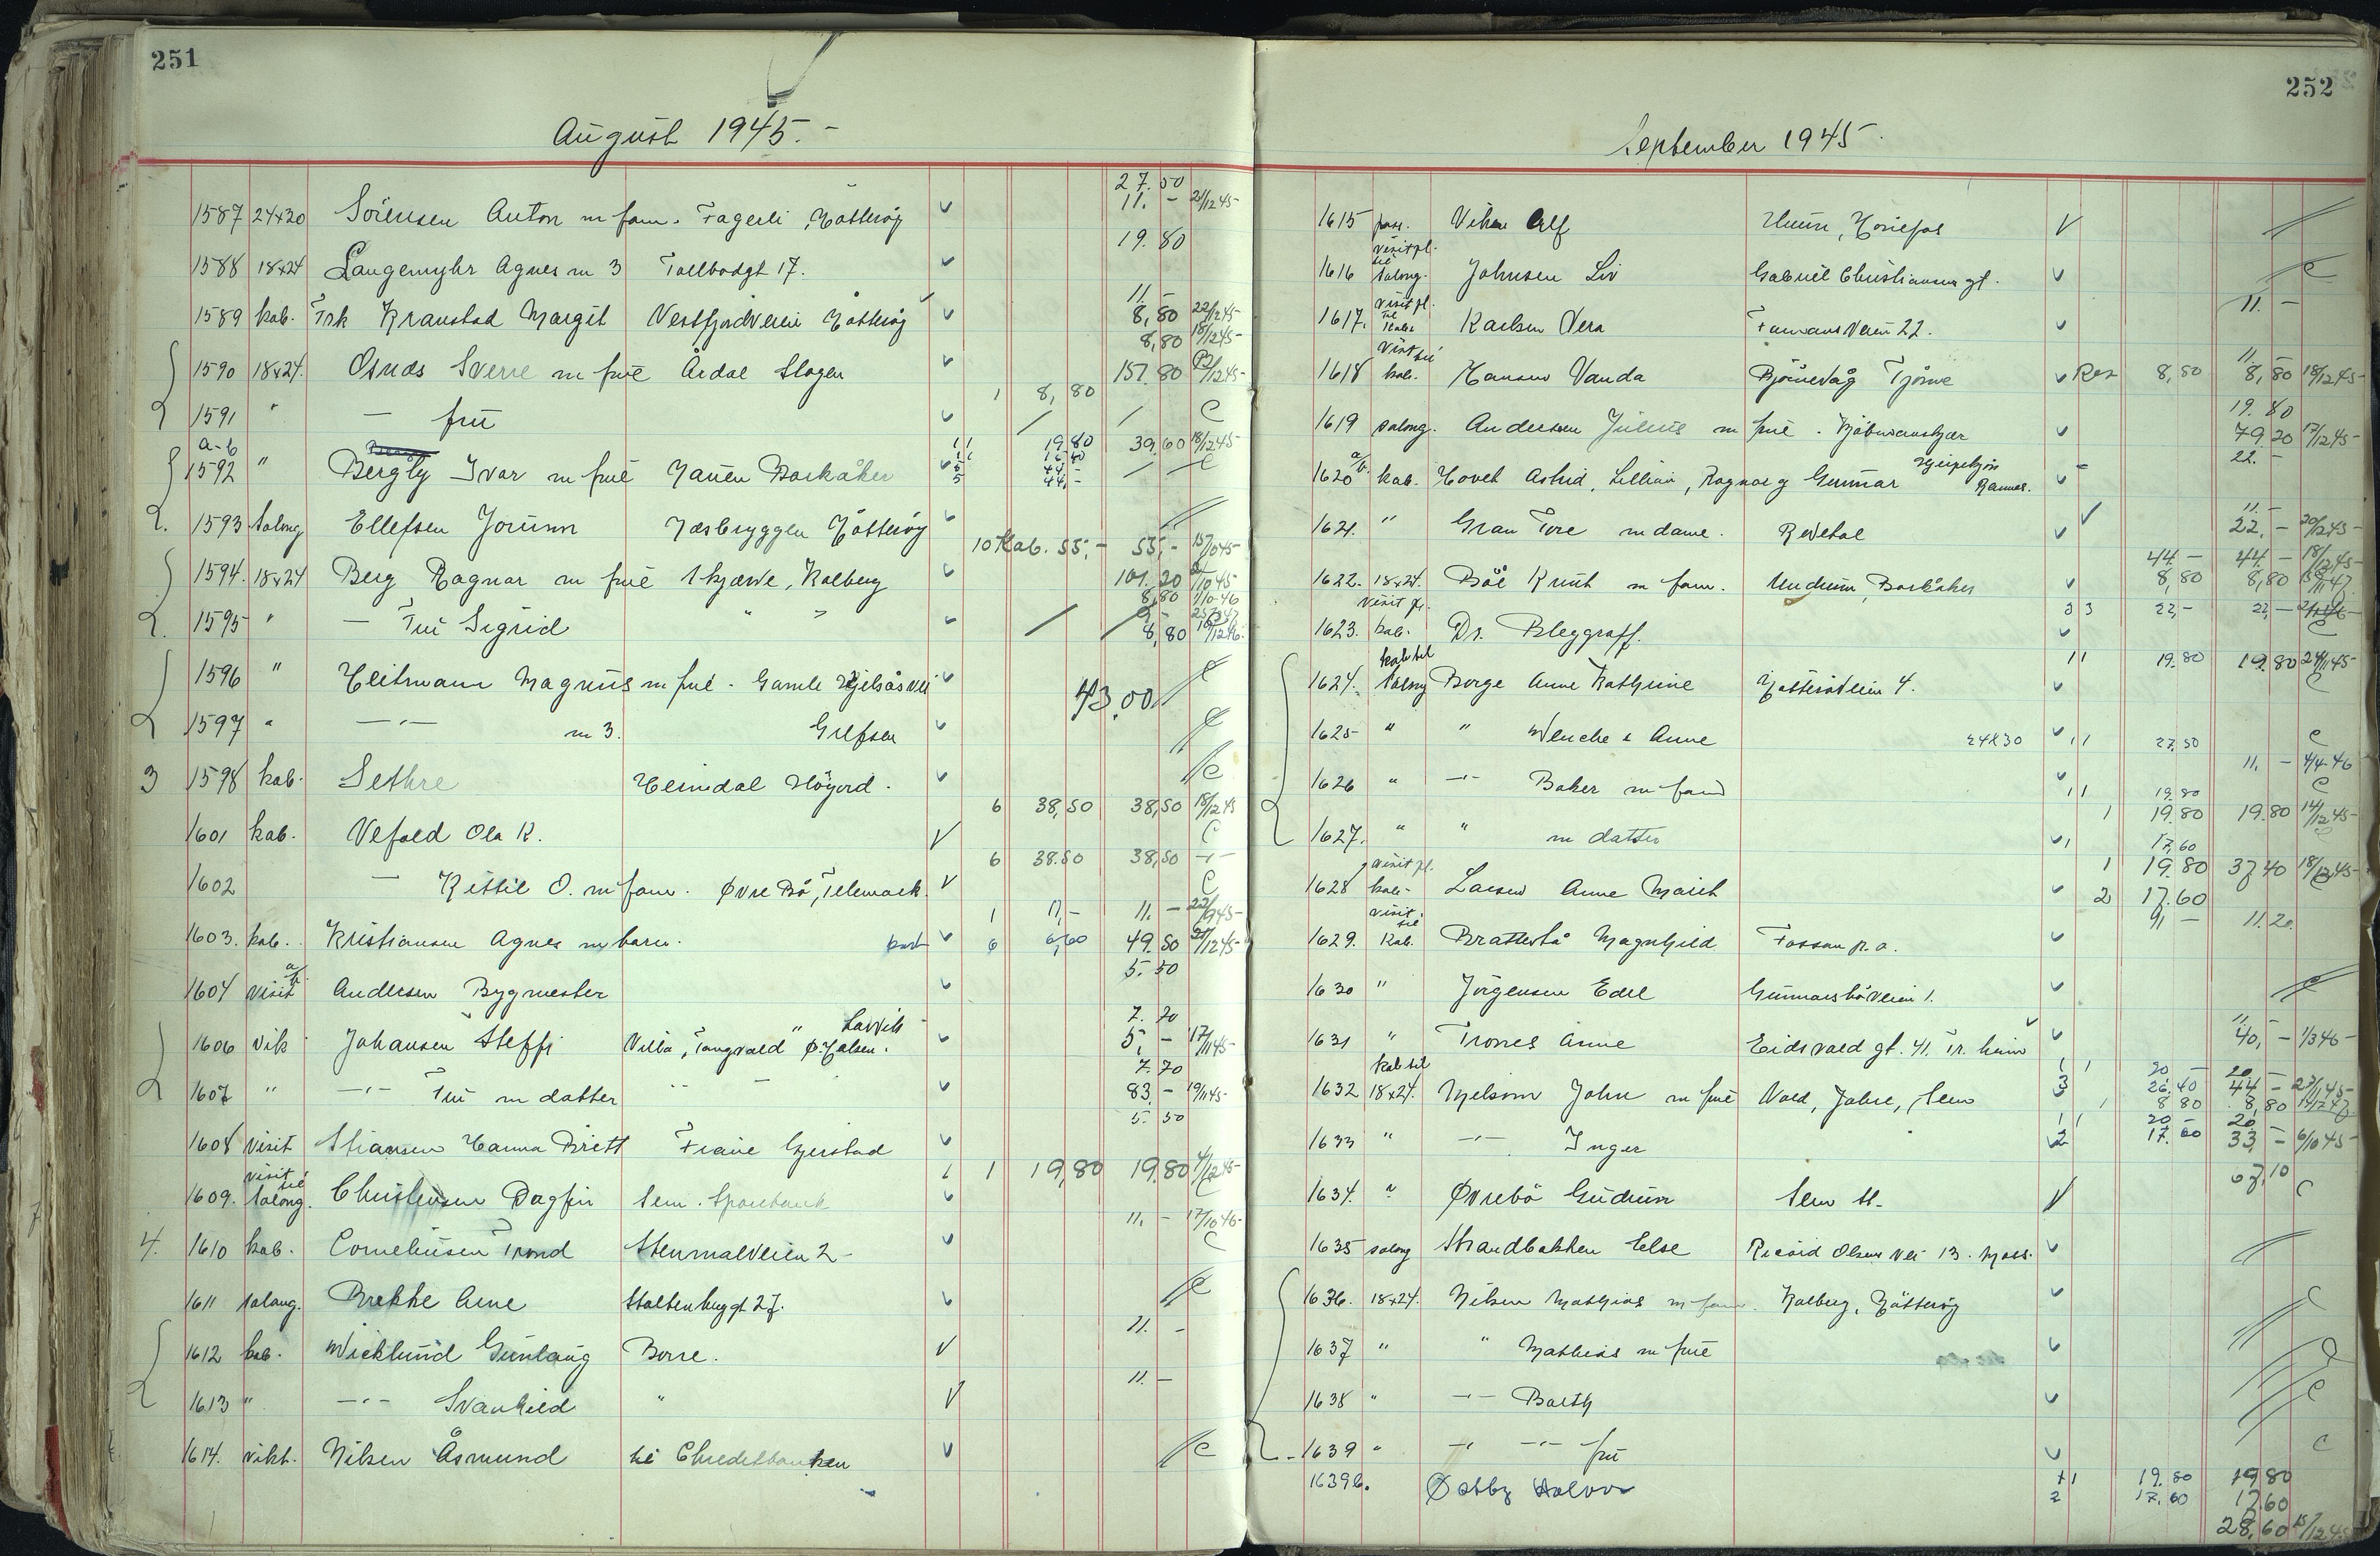 251
August 1945. -
27.50
1587 24x30 Sörensen Anton m fam. Fagerli, Nötteröy 11. - 21/12 45-
19.80
1588 18x24 Langemyhr Agnes m 3 Tollbodgt 17.
11. -
1589 kab. Frk Kranstad Margit Vestfjordveien Nötteröy 8,80 22/12 45-
8,80 18/12 45-
1590 18x24. Osnds Sverre m frue Årdal Slagen 157.80
1 8,80
1591 " — fru C
a-b 11 19.80 39.60 18/12 45-
1592 " Bergby Ivar m frue Barkåker 44.-
2. 1593 salong Ellefsen Jorunn Nesbryggen Nötteröy
10 Kab. 55,- 55,- 15/10 45-
1594. 18x24 Berg Ragnar m frue Skjærve, Kalberg 101.20 10 45
8,80 1/10-46
2. 1595 " — Fru Sigrid " " 8,80
1596 " Heitmann Magnus m frue - Gamle Kjelsåsvei C
43.00
1597 " —"— m 3. Grefsen C
3 1598 kab. Sethre Heimdal Höyord. C
6 38,50 38,50 18/12 45
1601 kab. Vefald Ola K. C
6 38.50 38,50 -"-
1602 — Kittil O. m fam. Øvre Bö, Telemark. C
1 11,- 11. - 22/9 45-
1603. kab. Kristiansen Agnes m barn. kort 6 6,60 49.50 21/12 45-
5.50
1604 visit a/b Andersen Bygmester
7.70
Larvik
1606 vik Johansen Steffi Villa "Tangvald" Ø. Halsen. 5, - 17/11 45-
7.70
1607 " —"— Fru m datter " — 83. - 19/11 45-
5.50
1608 visit Stiansen Hanna Britt Fraue Gjerstad
1 1 19,80 19.80 4/12 45-
visit til
1609. salong. Christensen Dagfin Sem. Sparebank C
11. - 17/10 46-
4. 1610 kab. Corneliusen Trond Stenmalveien 2 - C
1611 salong. Brekke Arne Stoltenberggt 27. C
11. -
1612 kab. Wicklund Gunlaug Borre.
11. -
1613 " —"— Svanhild "
1614. vikt. Nilsen Åsmund til Chreditbanken C
252
September 1945.
1615 pass. Vihn Alf Unum, Hönefos
visitpl. til
1616 salong. Johnsen Liv Gabriel Christiansens gt. C
11. -
visitpl. til
1617. kab. Karlsen Vera Farmansveien 22.
11. -
visit til
1618 kab. Hansen Vanda Bjørnevåg Tjöme Res 8,80 8,80 18/12 45-
19.80
1619 salong. Andersen Julius m frue. Kjöbmannskjær 79.20 17/12 45-
22. -
1620 a/b kab. Hovet Astrid, Lillian, Ragnar og Gunnar Ramnes.
11. -
1621. " Gran Tore m dame. Revetal 22. - 20/12 45-
44. - 44. - 18/12 45-
1622. 18x24. Böe Knut m fam. Undrum, Barkåker 8,80 8,80
visit pl. 3 3 22,- 22, -
1623. kab. Dr. Bleggraff. C
kab til 11 19.80 19.80 24/11 45-
1624. salong Borge Anne Kathrine Nötteröveien 4. C
1625 " " Wenche & Anne 24x30 11 27.50 C
11. - 4/4-46
1626 " —"— Baker m fam 11 19.80 C
1 19.80 19.80 14/12 45-
1627. " " m datter 1 17,60
visit pl. 1 19.80 37,40 18/12 45-
1628 kab. Larsen Anne Marit 2 17.60
visit til 11.20
1629. kab. Brattestå Magnhild Fossan p.a.
1630 " Jörgensen Edel Gunnarsböveien 1. C
11. -
1631 " Trones Anne Eidsvoldgt. 41. Tr.heim 40, - 1/3 46-
kab til 1 1 20 - 20 -
1632 18x24. Melsom John m frue Vold, Jahre, Sem 3 26,40 44 - 23/11 45-
1 8 80 8,80
1 1 20 - 20 -
1633 " —"— Inger 2 17.60 33, - 6/10 45-
67,10
1634. " Øvrebö Gudrun Sem st. C
1635 salong Strandbakken Else Rikard Olsens vei 13. Moss.
1636. 18x24. Nilsen Mathias m fam. Kalberg, Nötteröy C
1637 " " Mathias m frue
1638 " —"— Barth C
1639 " —"— —"— fru C
1639b. Østby Halvor 1 19.80 19.80
2 17.60 17.60
28,60 15/12 45